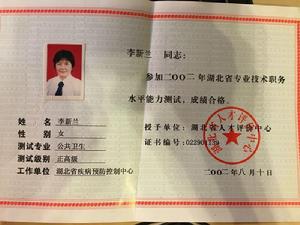 李新兰 同志：
参加二〇〇二年湖北省专业技术职务
水平能力测试，成绩合格。
姓名 李新兰
性别 女
测试专业 公共卫生
测试级别 正高级
工作单位 湖北省疾病预防控制中心
授予单位：湖北省人才评价中心
证书编号：022901139
湖北省人才评价中心
二〇〇二年八月十日